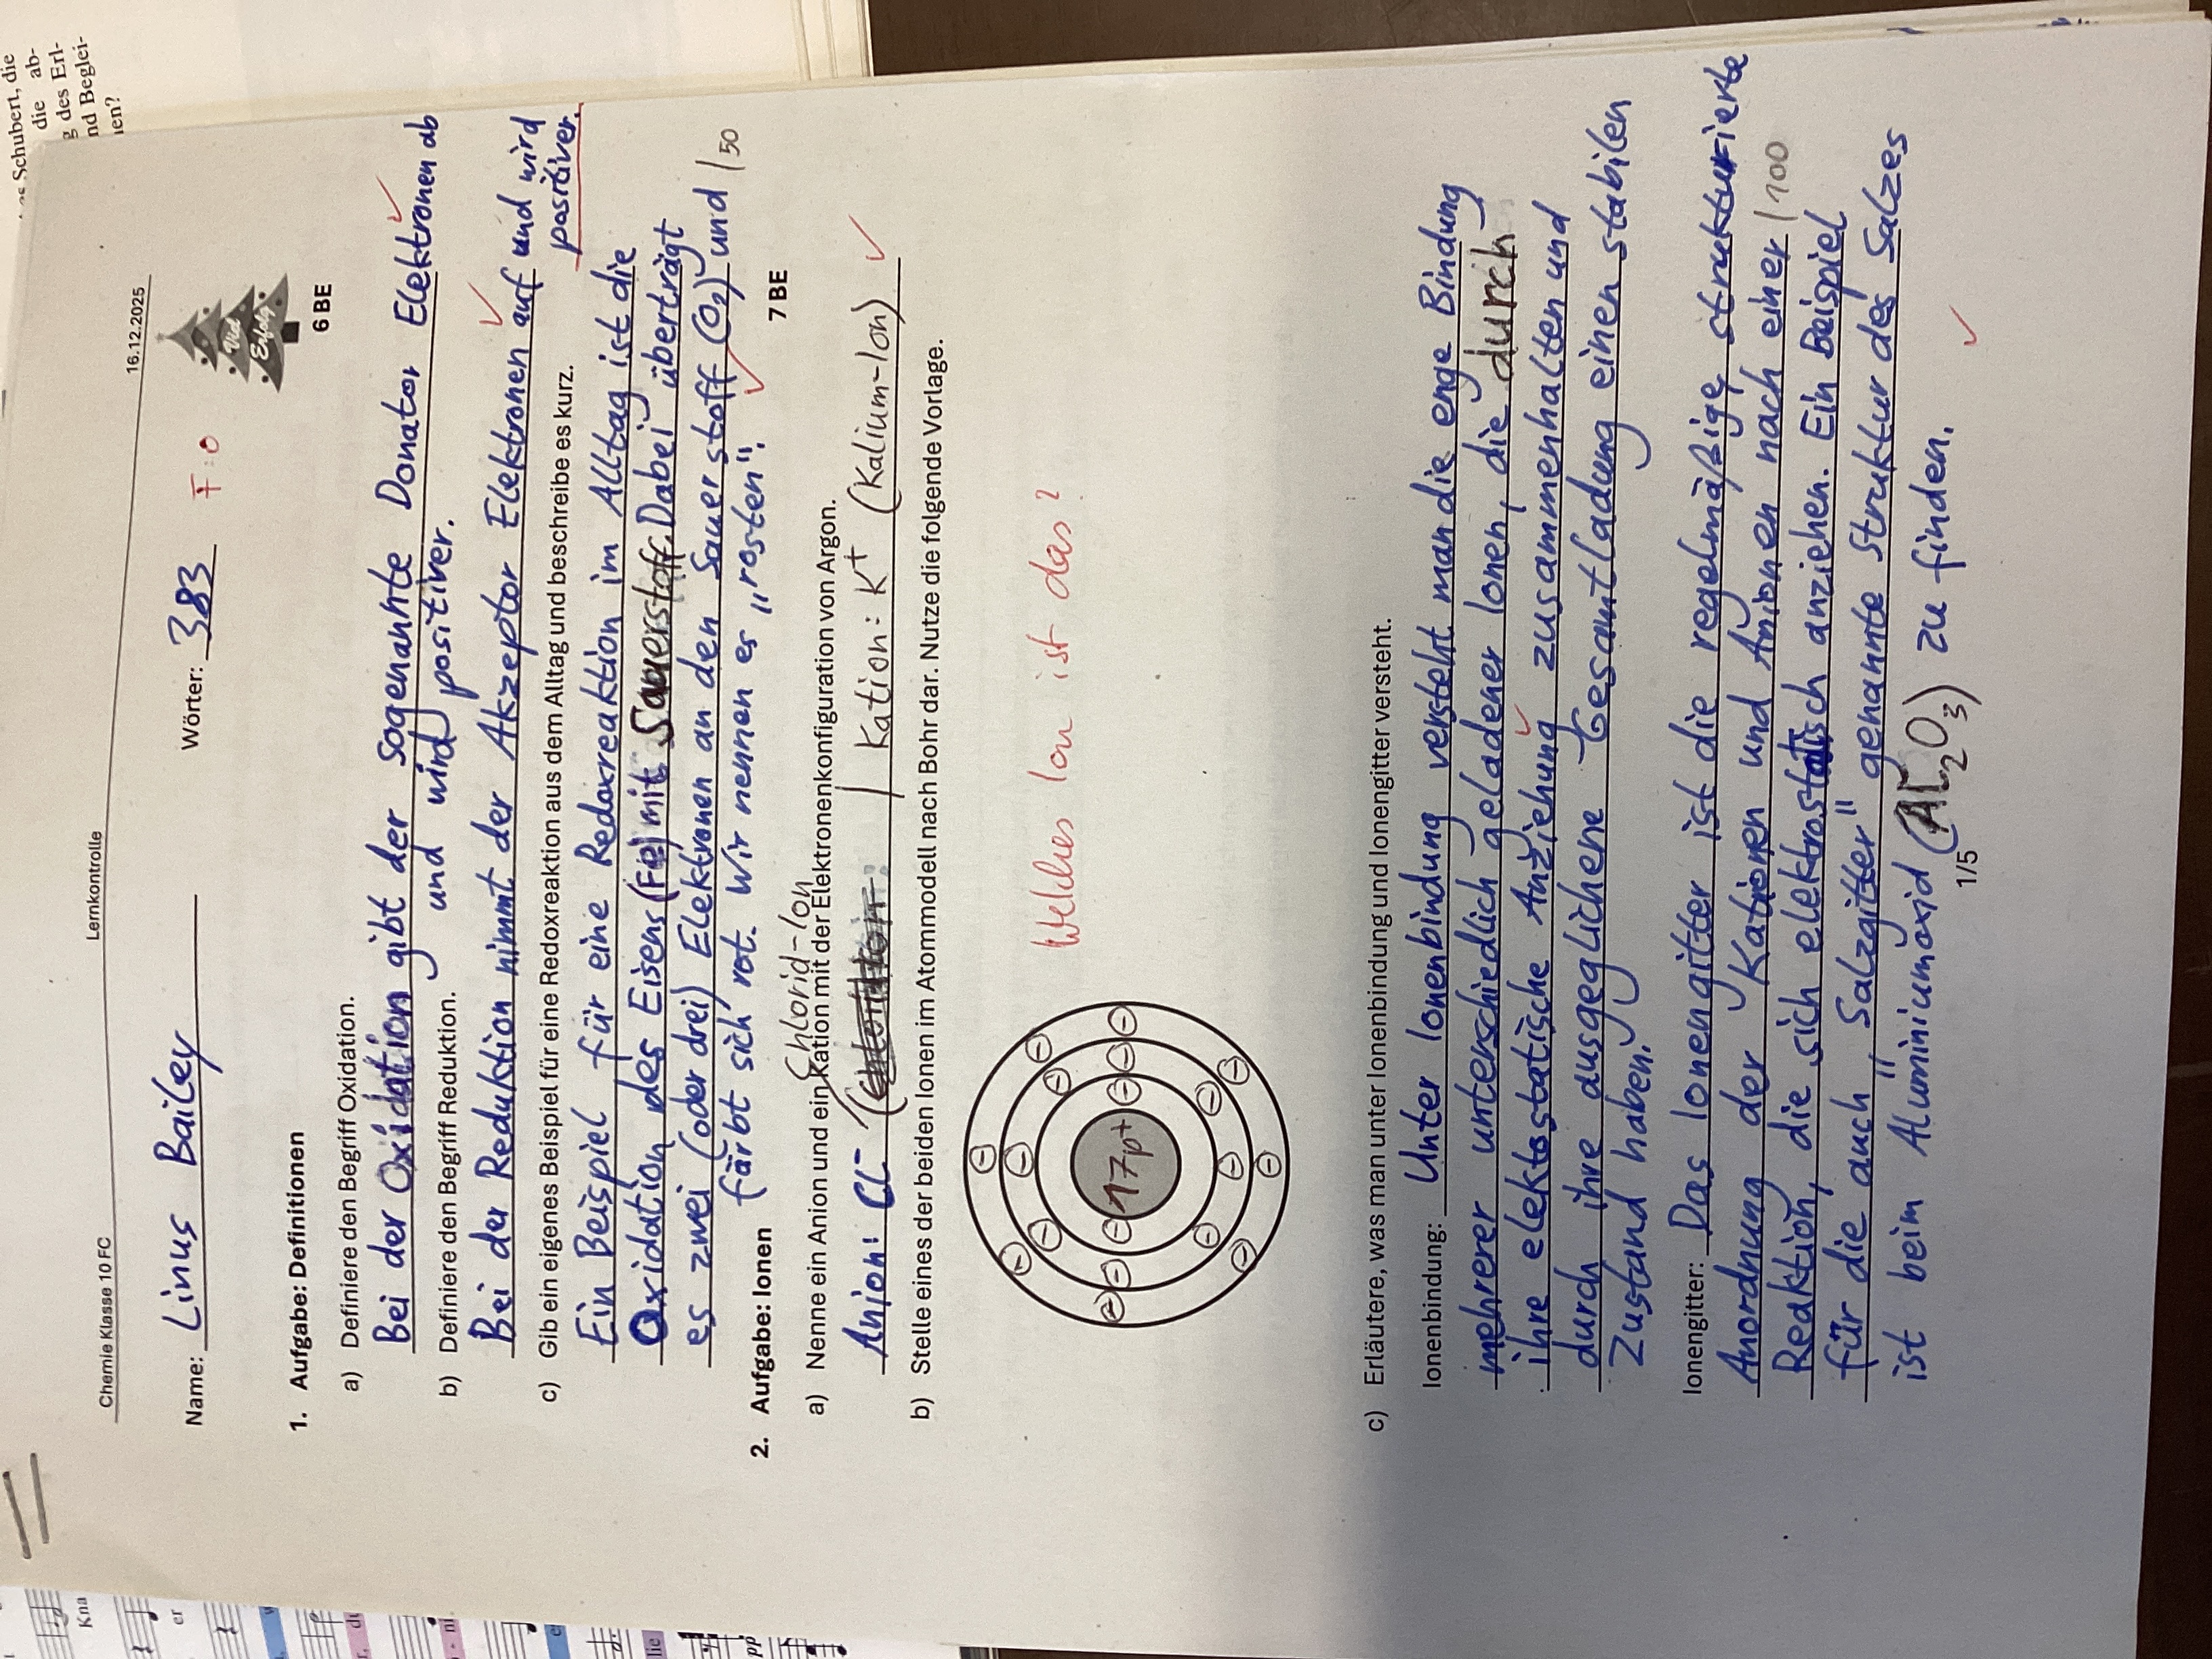 as Schubert, die
die ab-
g des Erl-
nd Beglei-
nen?
Chemie Klasse 10 FC Lernkontrolle 16.12.2025
Name: Linus Bailey Wörter: 383 F: 0
Viel
Erfolg
1. Aufgabe: Definitionen 6 BE
a) Definiere den Begriff Oxidation.
Bei der Oxidation gibt der sogenannte Donator Elektronen ab
und wird positiver.
b) Definiere den Begriff Reduktion.
Bei der Reduktion nimmt der Akzeptor Elektronen auf und wird
positiver.
c) Gib ein eigenes Beispiel für eine Redoxreaktion aus dem Alltag und beschreibe es kurz.
Ein Beispiel für eine Redoxreaktion im Alltag ist die
Oxidation des Eisens (Fe) mit Sauerstoff. Dabei überträgt
es zwei (oder drei) Elektronen an den Sauerstoff (O₂) und /50
färbt sich rot. Wir nennen es „rosten".
2. Aufgabe: Ionen 7 BE
a) Nenne ein Anion und ein Kation mit der Elektronenkonfiguration von Argon.
Chlorid-Ion
Anion: Cl⁻ ( | Kation: K⁺ (Kalium-Ion)
b) Stelle eines der beiden Ionen im Atommodell nach Bohr dar. Nutze die folgende Vorlage.
17p⁺
Welches Ion ist das?
c) Erläutere, was man unter Ionenbindung und Ionengitter versteht.
Ionenbindung: Unter Ionenbindung versteht man die enge Bindung
mehrerer unterschiedlich geladener Ionen, die durch
ihre elektostatische Anziehung zusammenhalten und
durch ihre ausgeglichene Gesamtladung einen stabilen
Zustand haben.
Ionengitter: Das Ionengitter ist die regelmäßige, strukturierte
Anordnung der Kationen und Anionen nach einer /100
Reaktion, die sich elektrostatisch anziehen. Ein Beispiel
für die auch „Salzgitter" genannte Struktur des Salzes
ist beim Aluminiumoxid (Al₂O₃) zu finden.
1/5
Kna
er
pp
lie